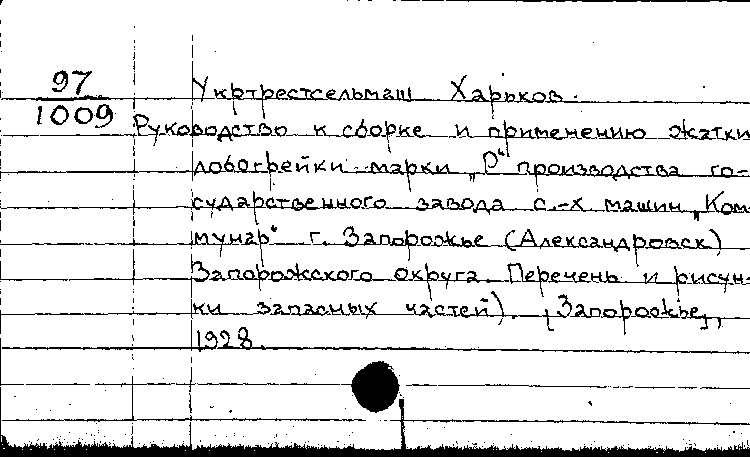 97
1009
Укртрестсельмаш Харьков.
Руководство к сборке и применению жатки
лобогрейки марки „О“ производства го-
сударственного завода с.-х машин „Ком-
мунар“ г. Запорожье (Александровск)
Запорожского округа. Перечень и рисун-
ки запасных частей). [Запорожье],
1928.